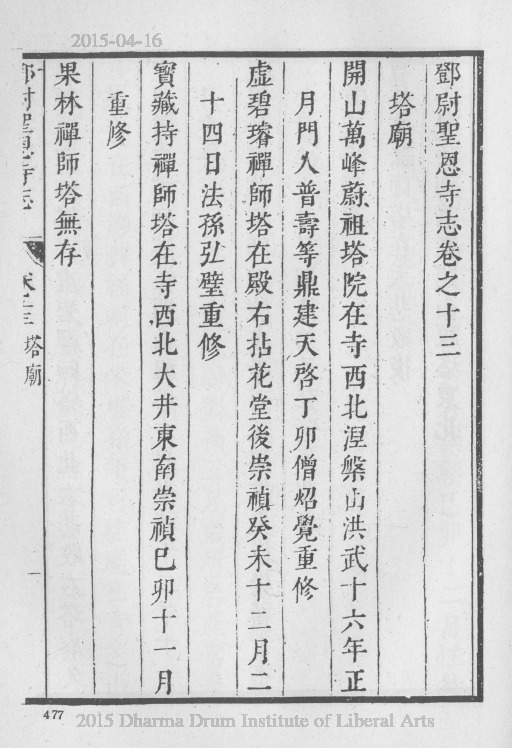 2015-04-16
鄧尉聖恩寺志卷之十三
塔廟
開山萬峰蔚祖塔院在寺西北涅槃山洪武十六年正
月門人普壽等鼎建天啓丁卯僧炤覺重修
虛碧璿禪師塔在殿右拈花堂後崇禎癸未十二月二
十四日法孫弘璧重修
寳藏持禪師塔在寺西北大井東南崇禎巳卯十一月
重修
果林禪師塔無存
鄧尉聖恩寺志
卷之十三 塔廟 一
477
2015 Dharma Drum Institute of Liberal Arts